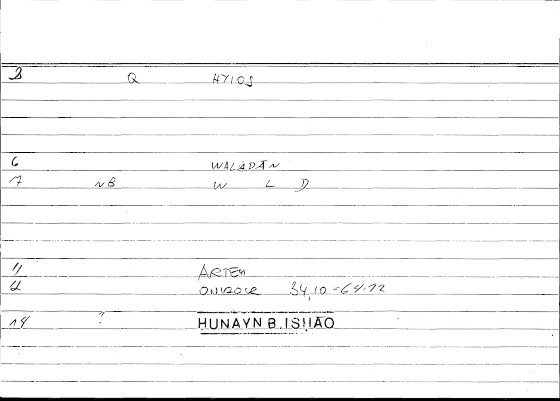 3 Q HYIOS
6 WALADĀN
7 NB W L D
11 ARTEM
12 ONIROCR 34,10-64.12
14 ? HUNAYN B.ISḤĀQ